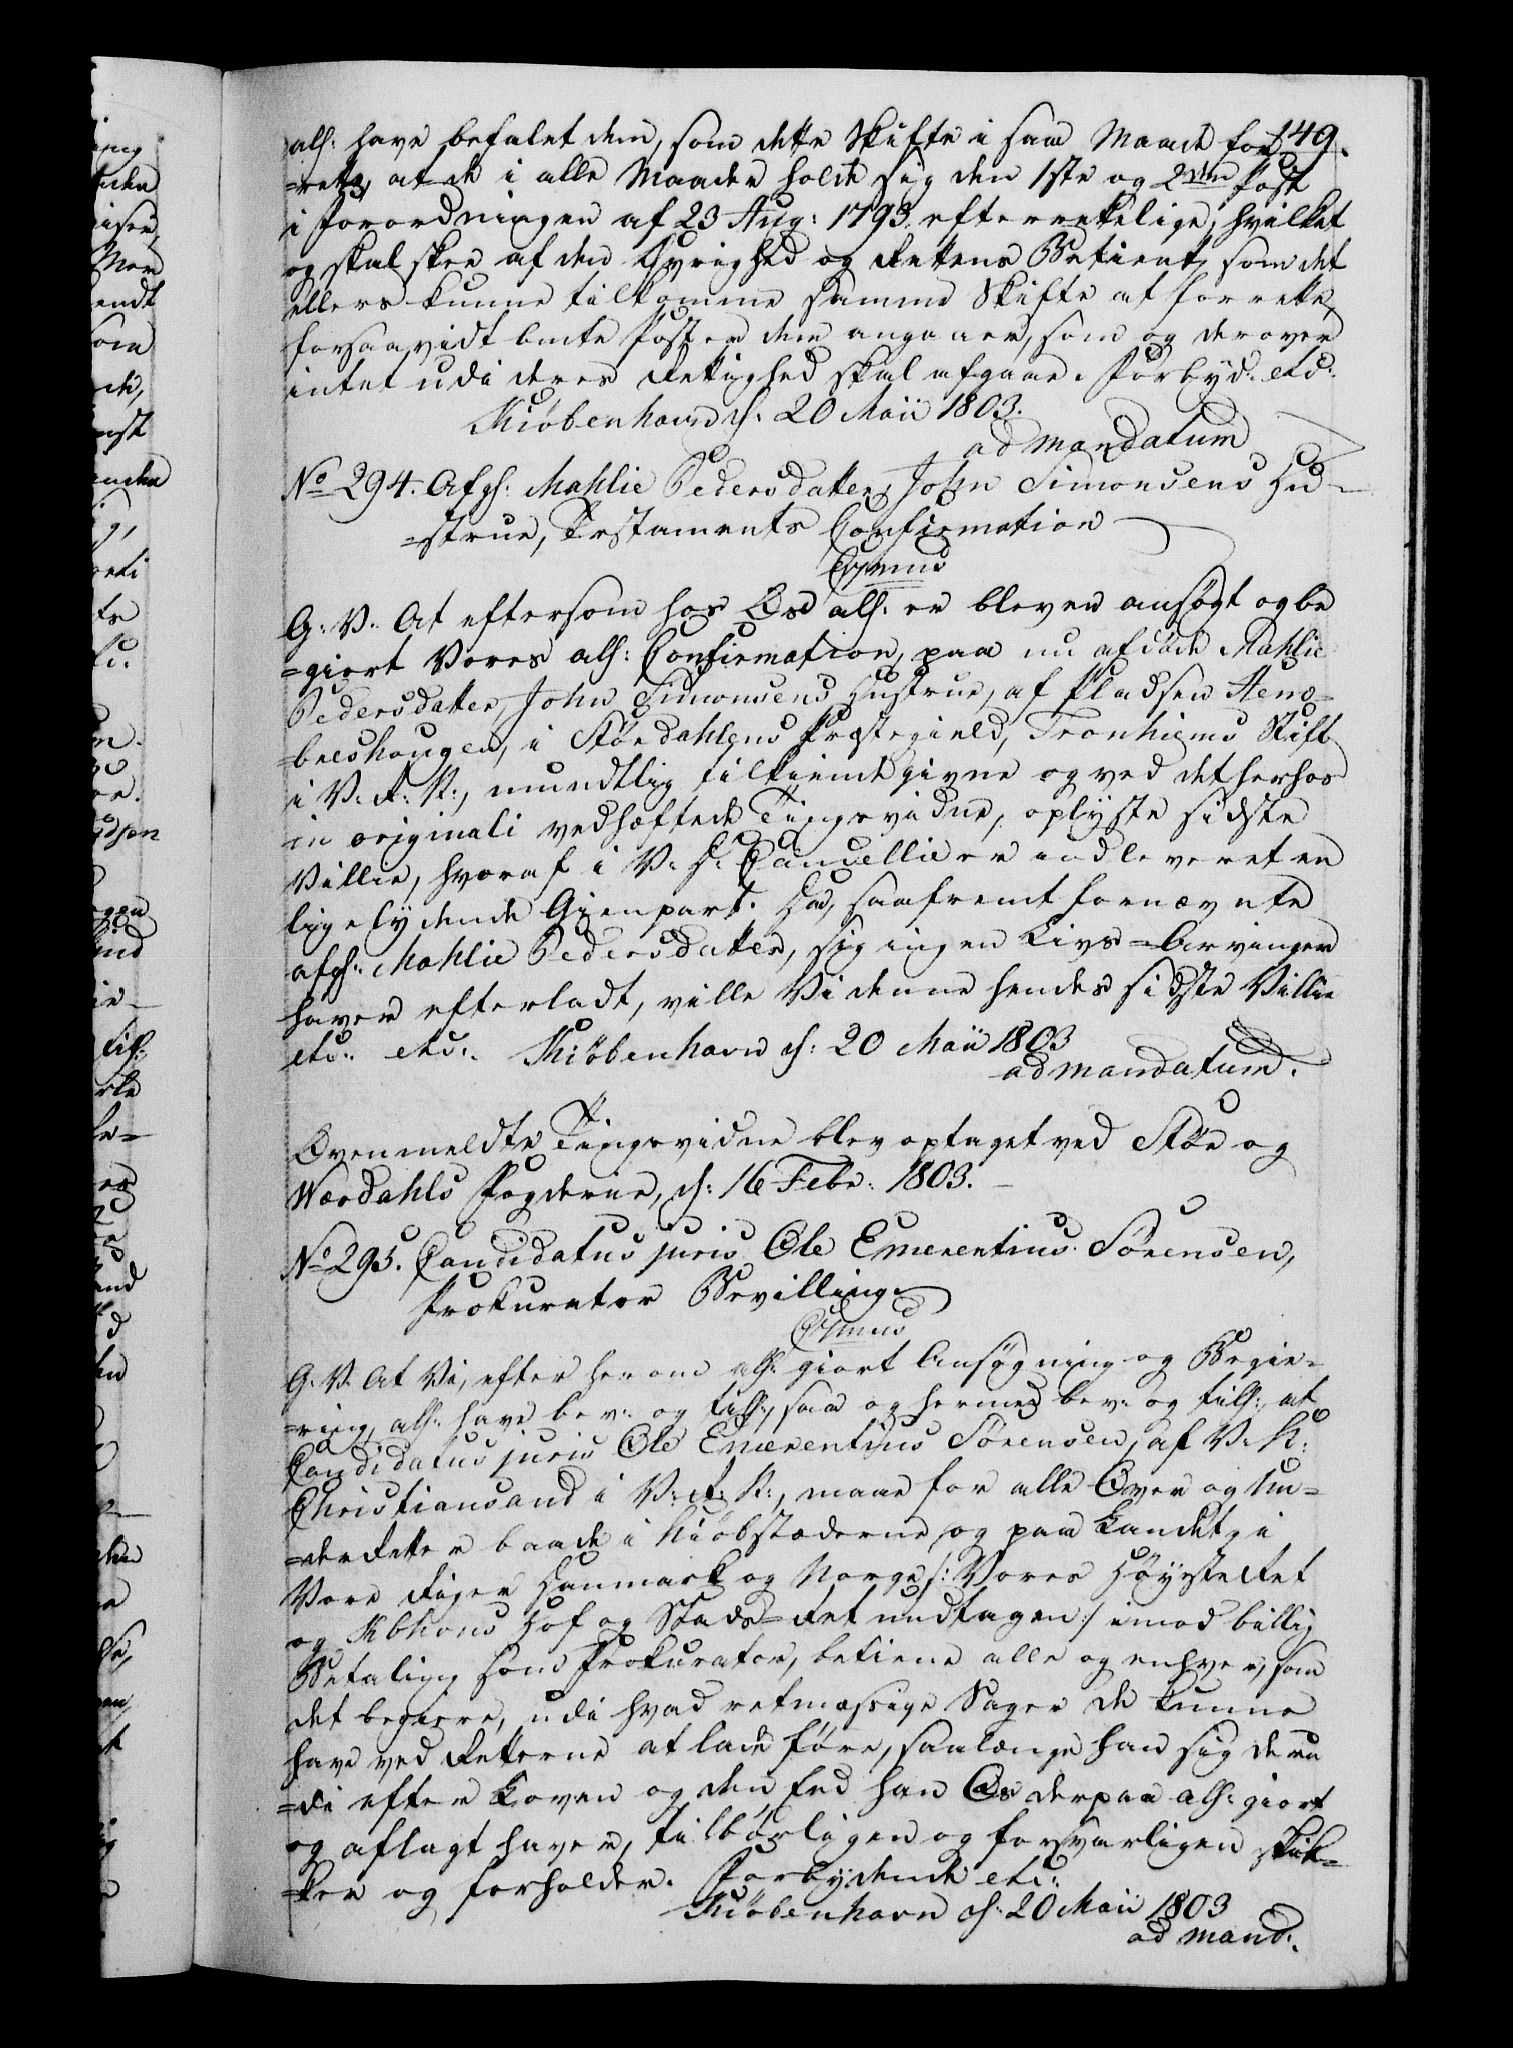 allf: have befalet dem, som dette Skifte i saa Maade for¬ 149.
=rette, at de i alle Maader holde sig den 1ste og 2den Post
i Forordningen af 23 Aug: 1793. efterrettelige; hvilket
og skal skee af den Øvrighed og Rettens Betient, som det
ellers kunne tilkomme samme Skifte at forrette,
forsaavidt bmte Poster dem angaaer, som og derover
intet udi deres Rettighed skal afgaae. Forbyd: etc:
Kiøbenhavn d: 20 Maii 1803.
ad mandatum
No 294. Afg: Mahlie Pedersdatter, John Simonsens Hu-
=strue, Testaments Confirmation
Crmus
G: V: At eftersom hos Os all: er bleven ansøgt og be
=giort Vores all: Confirmation, paa nu afdøde Mahlie
Pedersdatter, John Simonsens Hustrue, af Pladsen Hem=
=breshougen, i Stördahlens Præstegield, Tronhiems Stift
i V: R: N:, mundtlig tilkiendegivne og ved det herhos
in originali vedhæftede Tingsvidne, oplyste sidste
Villie, hvoraf i V: D: Cancellie er indleveret en
ligelydende Gienpart. Da, saafremt fornævnte
afg: Mahlie Pedersdatter, sig ingen Livs=Arvinger
haver efterladt, ville Vi denne hendes sidste Villie
etc: etc: Kiøbenhavn d: 20 Maii 1803
ad mandatum.
Ovenmeldte Tingsvidne blev optaget ved Stör og
Værdahls Fogderie, d: 16 Febr: 1803.
No 295. Candidatus juris Ole Emerentius Sörensen,
Prokurator Bevilling.
Crmus
G: V: At Vi, efter herom all: giort Ansøgning og Begie=
=ring, all: have bev: og till:, saa og hermed bev: og till:, at
Candidatus juris Ole Emerentius Sörensen, af V: K:
Christiansand i V: R: N:, maae for alle Over og Un=
=derRetter baade i Kiøbstæderne og paa Landet, i
Vore Riger Danmark og Norge /: Vores HöyesteRet
og Kbhavns Hof og Stads=Ret undtagen :/ imod billig
Betaling som Prokurator, betiene alle og enhver, som
det begiere, udi hvad retmæssige Sager de kunne
have ved Retterne at lade före, saalænge han sig deru
=di efter Loven og den Eed han Os derpaa all: giort
og aflagt haver, tilbørligen og forsvarligen skik=
=ker og forholder. Forbydende etc:
Kiøbenhavn d: 20 Maii 1803
ad mand: